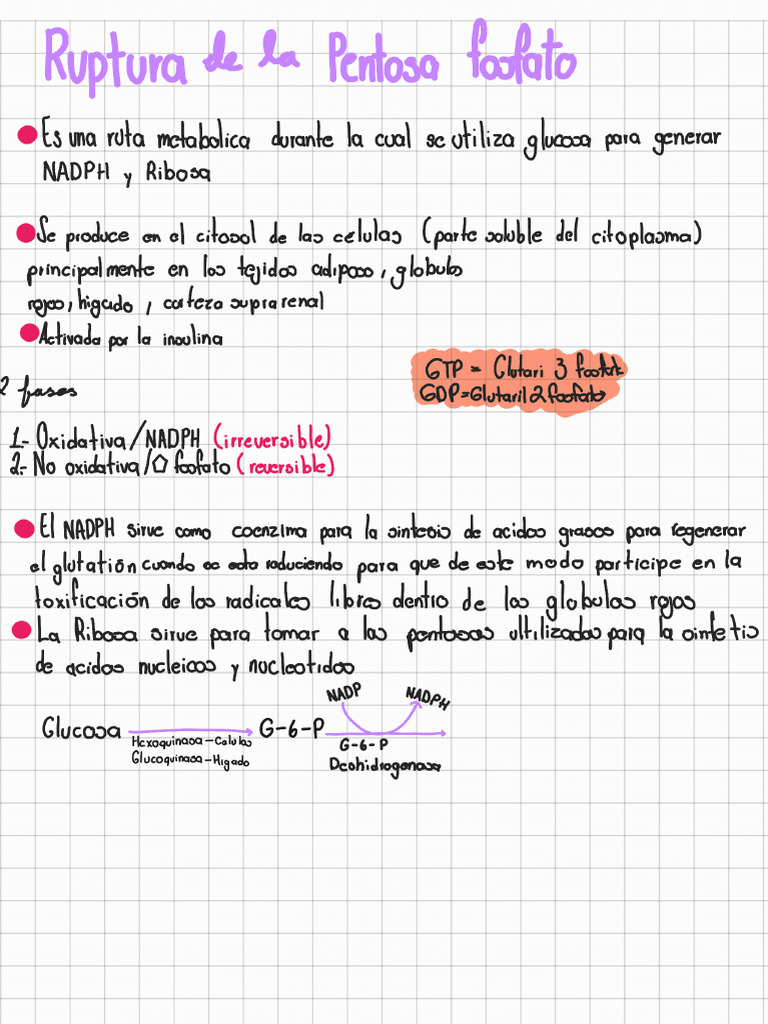 Ruptura de la Pentosa fosfato
Es una ruta metabolica durante la cual se utiliza glucosa para generar
NADPH y Ribosa
Se produce en el citosol de las células (parte soluble del citoplasma)
principalmente en los tejidos adiposo, globulos
rojos, higado, corteza suprarenal
Activada por la insulina
GTP = Glutari 3 fosfato
GDP = Glutaril 2 fosfato
2 fases
1.- Oxidativa/NADPH (irreversible)
2.- No oxidativa/⬠ fosfato (reversible)
El NADPH sirve como coenzima para la sintesis de acidos grasos para regenerar
el glutatión cuando se esta reduciendo para que de este modo participe en la
toxificación de los radicales libres dentro de los globulos rojos
La Ribosa sirve para tomar a las pentosas ultilizadas para la sintetis
de acidos nucleicos y nucleotidos
NADP NADPH
Glucosa G-6-P
Hexoquinasa-Celulas G-6-P
Glucoquinasa-Higado Deshidrogenasa